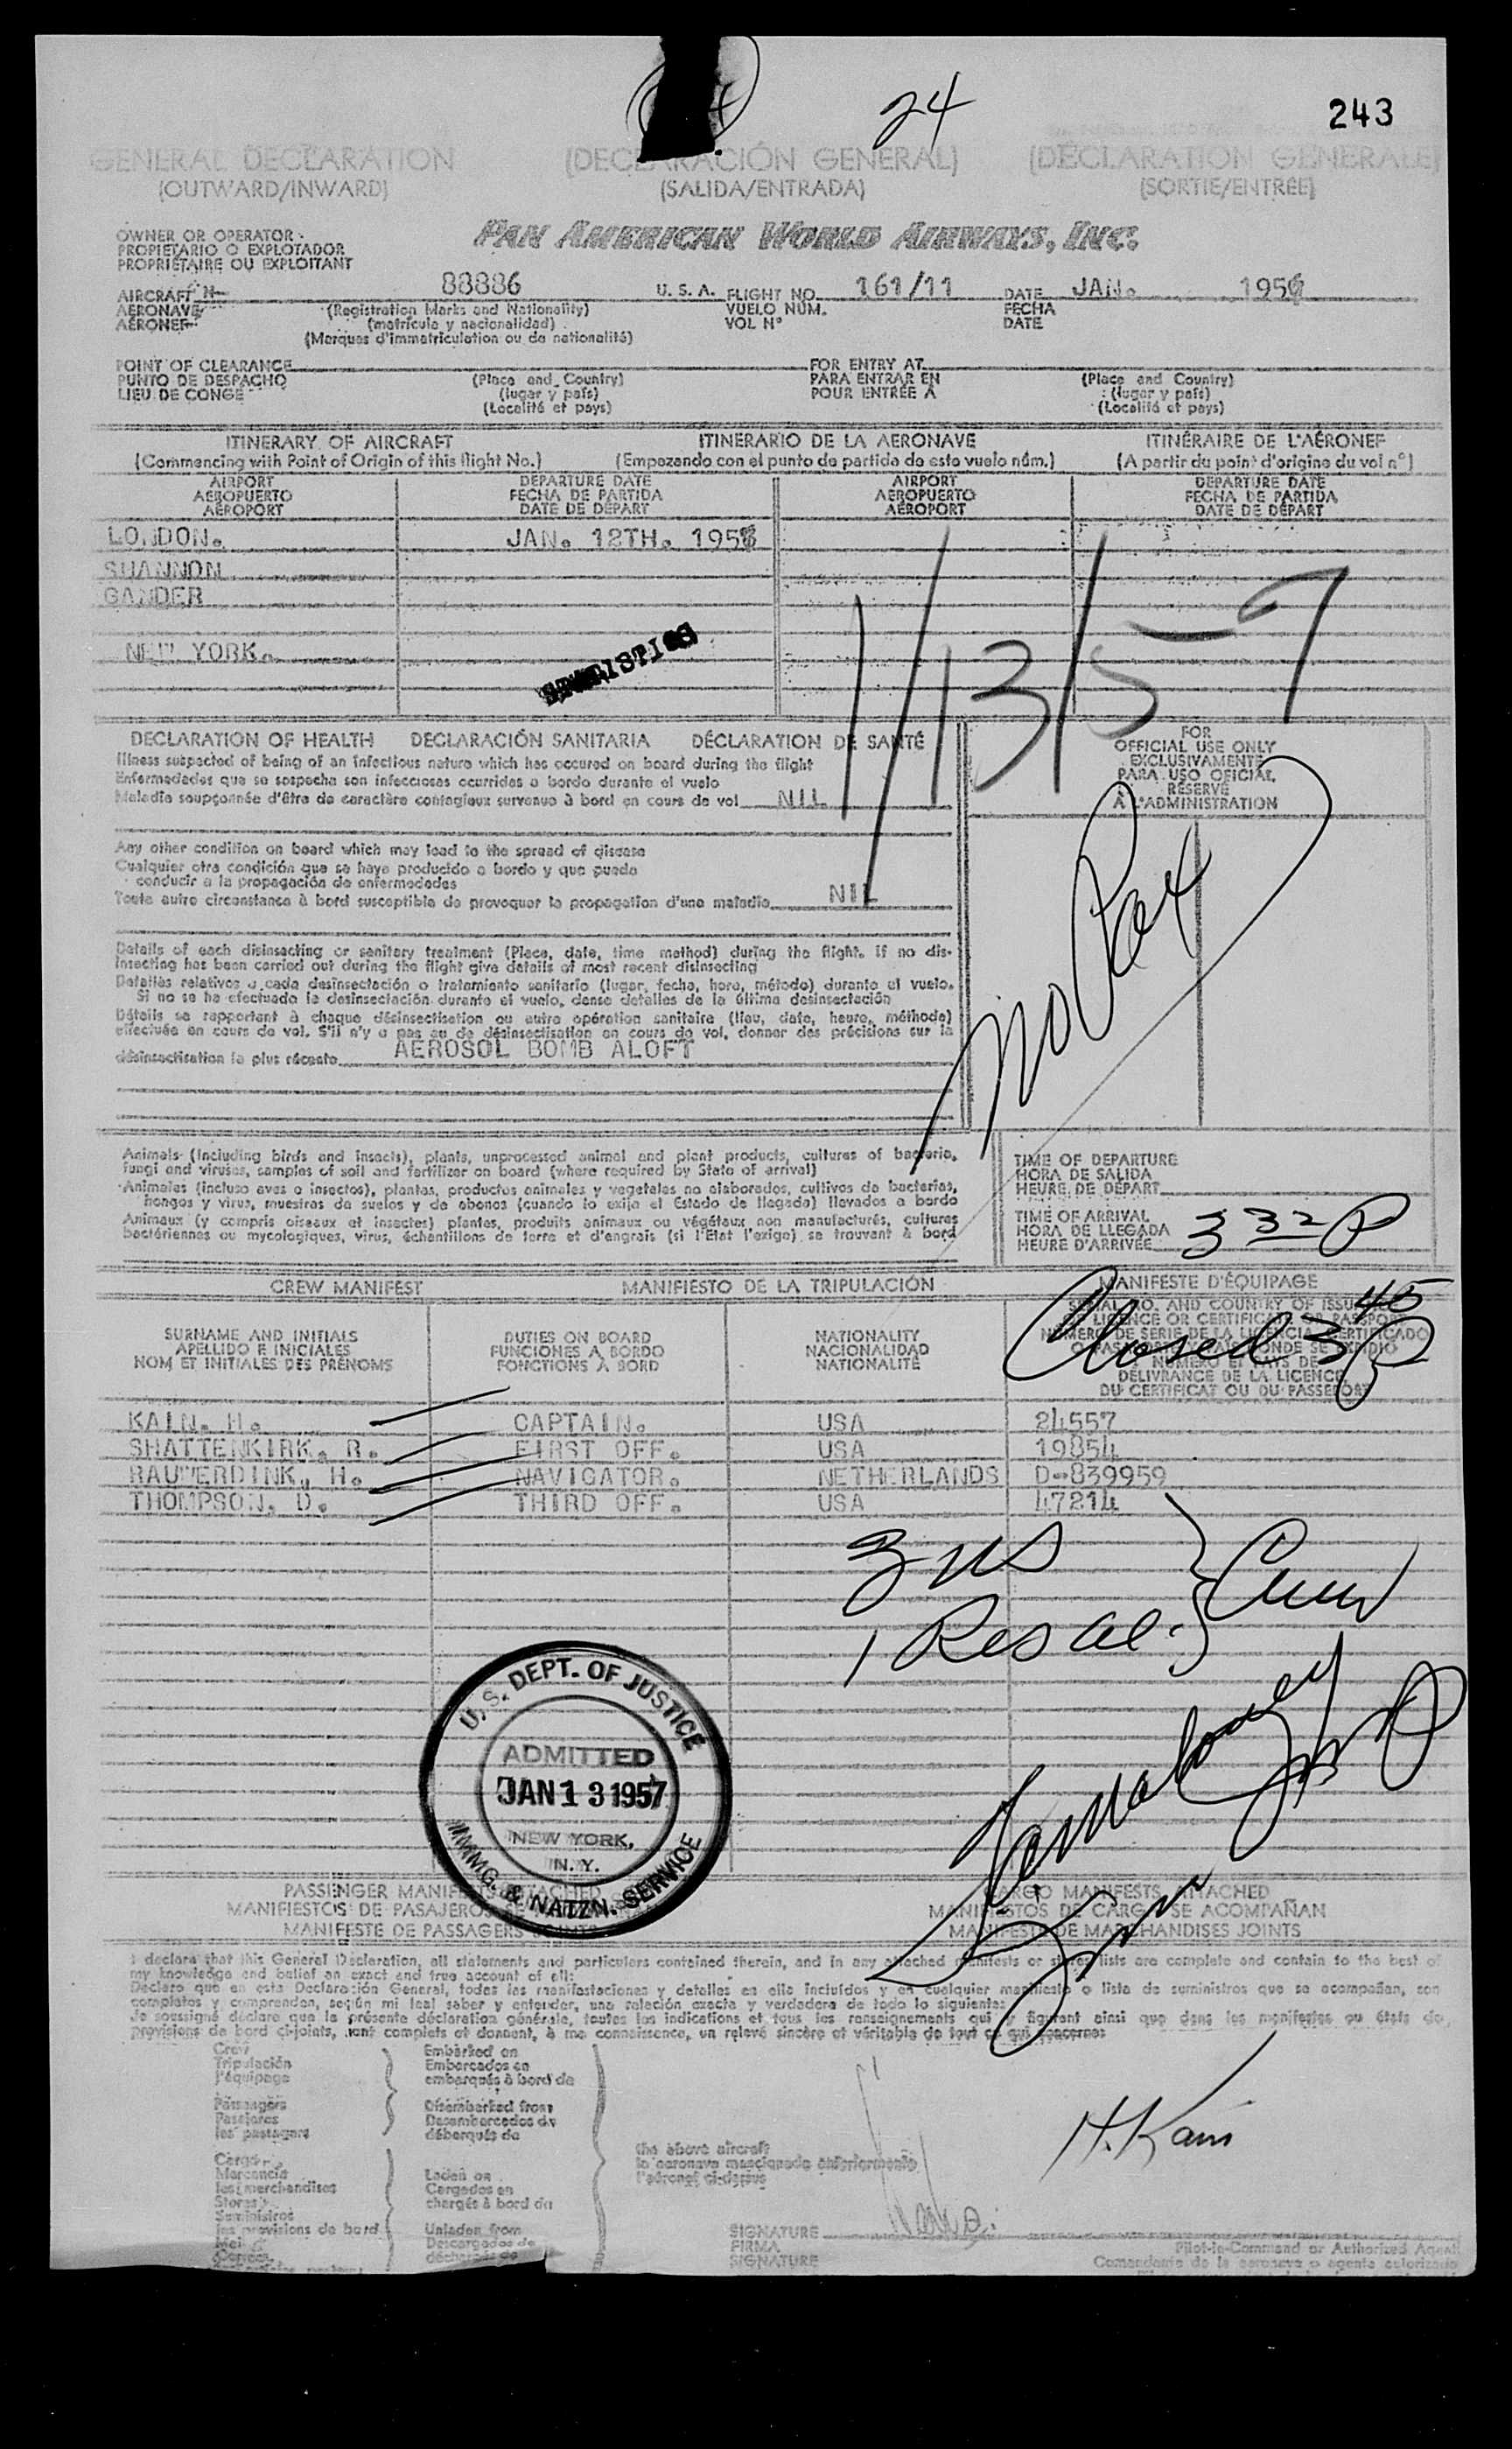 24
243
GENERAL DECLARATION (DECLARACIÓN GENERAL) (DÉCLARATION GÉNÉRALE)
(OUTWARD/INWARD) (SALIDA/ENTRADA) (SORTIE/ENTRÉE)
OWNER OR OPERATOR
PROPIETARIO O EXPLOTADOR
PROPRIÉTAIRE OU EXPLOITANT
PAN AMERICAN WORLD AIRWAYS, INC.
AIRCRAFT N- 88886 U. S. A. FLIGHT NO. 161/11 DATE JAN. 195
AERONAVE (Registration Marks and Nationality) VUELO NÚM. FECHA
AÉRONEF (matrícula y nacionalidad) VOL Nº DATE
(Marques d'immatriculation ou de nationalité)
POINT OF CLEARANCE FOR ENTRY AT
PUNTO DE DESPACHO (Place and Country) PARA ENTRAR EN (Place and Country)
LIEU DE CONGÉ (lugar y país) POUR ENTRÉE À (lugar y país)
(Localité et pays) (Localité et pays)
ITINERARY OF AIRCRAFT ITINERARIO DE LA AERONAVE ITINÉRAIRE DE L'AÉRONEF
(Commencing with Point of Origin of this flight No.) (Empezando con el punto de partida de este vuelo núm.) (A partir du point d'origine du vol nº)
AIRPORT DEPARTURE DATE AIRPORT DEPARTURE DATE
AEROPUERTO FECHA DE PARTIDA AEROPUERTO FECHA DE PARTIDA
AÉROPORT DATE DE DÉPART AÉROPORT DATE DE DÉPART
LONDON. JAN. 12TH. 195
SHANNON
GANDER
NEW YORK.
STATISTICS
1/13/57
DECLARATION OF HEALTH DECLARACIÓN SANITARIA DÉCLARATION DE SANTÉ
Illness suspected of being of an infectious nature which has occured on board during the flight
Enfermedades que se sospecha son infecciosas ocurridas a bordo durante el vuelo
Maladie soupçonnée d'être de caractère contagieux survenue à bord en cours de vol NIL
FOR
OFFICIAL USE ONLY
EXCLUSIVAMENTE
PARA USO OFICIAL
RÉSERVÉ
À L'ADMINISTRATION
No Pax
Any other condition on board which may lead to the spread of disease
Cualquier otra condición que se haya producido a bordo y que pueda
conducir a la propagación de enfermedades
Toute autre circonstance à bord susceptible de provoquer la propagation d'une maladie NIL
Details of each disinsecting or sanitary treatment (Place, date, time method) during the flight. If no dis-
insecting has been carried out during the flight give details of most recent disinsecting
Detalles relativos a cada desinsectación o tratamiento sanitario (lugar, fecha, hora, método) durante el vuelo.
Si no se ha efectuado la desinsectación durante el vuelo, dense detalles de la última desinsectación
Détails se rapportant à chaque désinsectisation ou autre opération sanitaire (lieu, date, heure, méthode)
effectuée en cours de vol. S'il n'y a pas eu de désinsectisation en cours de vol, donner des précisions sur la
désinsectisation la plus récente AEROSOL BOMB ALOFT
Animals (including birds and insects), plants, unprocessed animal and plant products, cultures of bacteria,
fungi and viruses, samples of soil and fertilizer on board (where required by State of arrival)
Animales (incluso aves o insectos), plantas, productos animales y vegetales no elaborados, cultivos de bacterias,
hongos y virus, muestras de suelos y de abonos (cuando lo exija el Estado de llegada) llevados a bordo
Animaux (y compris oiseaux et insectes) plantes, produits animaux ou végétaux non manufacturés, cultures
bactériennes ou mycologiques, virus, échantillons de terre et d'engrais (si l'Etat l'exige) se trouvant à bord
TIME OF DEPARTURE
HORA DE SALIDA
HEURE DE DÉPART
TIME OF ARRIVAL
HORA DE LLEGADA
HEURE D'ARRIVÉE
3 32 P
CREW MANIFEST MANIFIESTO DE LA TRIPULACIÓN MANIFESTE D'ÉQUIPAGE
SURNAME AND INITIALS DUTIES ON BOARD NATIONALITY
APELLIDO E INICIALES FUNCIONES A BORDO NACIONALIDAD
NOM ET INITIALES DES PRÉNOMS FONCTIONS À BORD NATIONALITÉ
SERIAL NO. AND COUNTRY OF ISSUE
LICENCE OR CERTIFICATE OR PASSPORT
NÚMERO DE SERIE DE LA LICENCIA CERTIFICADO
NUMÉRO ET PAYS DE
DÉLIVRANCE DE LA LICENCE
DU CERTIFICAT OU DU PASSEPORT
Closed 3 45 P
KAIN. H. CAPTAIN. USA 24557
SHATTENKIRK. R. FIRST OFF. USA 19854
RAUWERDINK, H. NAVIGATOR. NETHERLANDS D-839959
THOMPSON. D. THIRD OFF. USA 47214
3 US
1 Res Al.
Crew
U. S. DEPT. OF JUSTICE
ADMITTED
JAN 13 1957
NEW YORK,
N. Y.
IMMG. & NATZN. SERVICE
PASSENGER MANIFESTS ATTACHED CARGO MANIFESTS ATTACHED
MANIFIESTOS DE PASAJEROS MANIFIESTOS DE CARGA SE ACOMPAÑAN
MANIFESTE DE PASSAGERS JOINTS MANIFESTE DE MARCHANDISES JOINTS
I declare that this General Declaration, all statements and particulars contained therein, and in any attached manifests or stores lists are complete and contain to the best of
my knowledge and belief an exact and true account of all:
Declaro que en esta Declaración General, todas las manifestaciones y detalles en ella incluídos y en cualquier manifiesto o lista de suministros que se acompañan, son
completos y comprenden, según mi leal saber y entender, una relación exacta y verdadera de todo lo siguiente:
Je soussigné déclare que la présente déclaration générale, toutes les indications et tous les renseignements qui y figurent ainsi que dans les manifestes ou états de
provisions de bord ci-joints, sont complets et donnent, à ma connaissance, un relevé sincère et véritable de tout ce qui concerne:
Crew Embarked on
Tripulación Embarcados en
l'équipage embarqués à bord de
Passengers Disembarked from
Pasajeros Desembarcados de
les passagers débarqués de
Cargo
Mercancía Laden on
les merchandises Cargados en
Stores chargés à bord du
Suministros
les provisions de bord Unladen from
Mail Descargados de
Correos déchargés de
the above aircraft
la aeronave mencionada anteriormente
l'aéronef ci-dessus
H. Kain
SIGNATURE
FIRMA
SIGNATURE
Pilot-in-Command or Authorized Agent
Comandante de la aeronave o agente autorizado